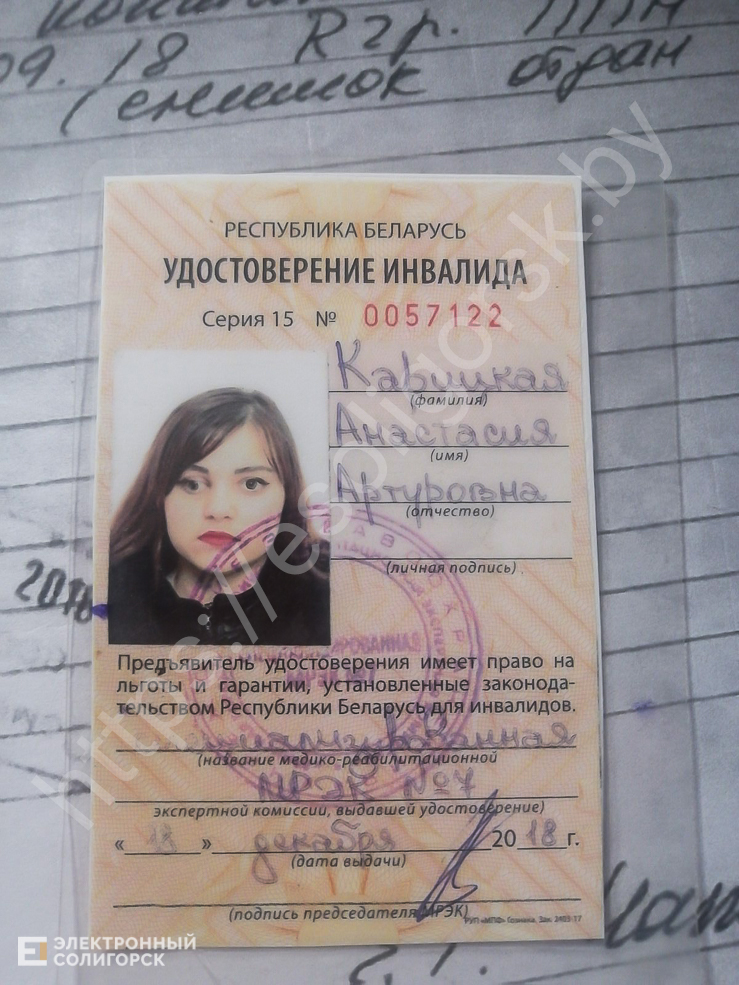 09. 18 R гр.
(снимок отдан
РЕСПУБЛИКА БЕЛАРУСЬ
УДОСТОВЕРЕНИЕ ИНВАЛИДА
Серия 15 № 0057122
Карицкая
(фамилия)
Анастасия
(имя)
Артуровна
(отчество)
(личная подпись)
2018
Предъявитель удостоверения имеет право на
льготы и гарантии, установленные законода-
тельством Республики Беларусь для инвалидов.
специализированная
(название медико-реабилитационной
МРЭК №7
экспертной комиссии, выдавшей удостоверение)
« 18 » декабря 2018 г.
(дата выдачи)
(подпись председателя МРЭК)
РУП «МПФ» Гознака. Зак. 2403-17
https://esoligorsk.by
E ЭЛЕКТРОННЫЙ
СОЛИГОРСК